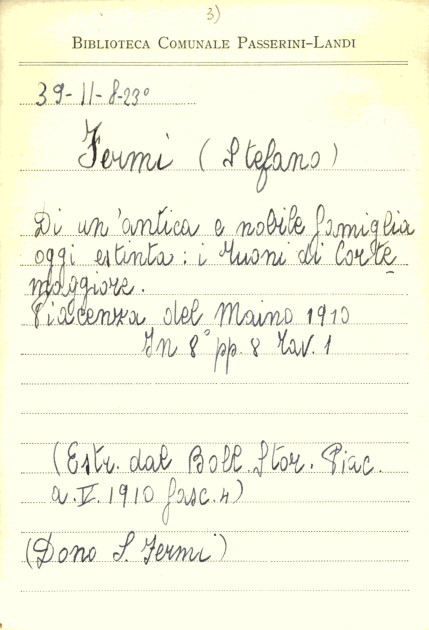 3)
BIBLIOTECA COMUNALE PASSERINI-LANDI
39-11-8-23°
Fermi (Stefano)
Di un'antica e nobile famiglia
oggi estinta: i Muoni di Corte
maggiore.
Piacenza del Maino 1910
In 8° pp. 8 Tav. 1
(Estr. dal Boll. Stor. Piac.
a. V. 1910 fasc. 4)
(Dono S. Fermi)